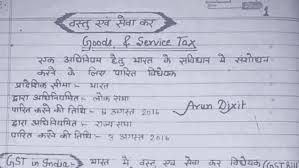 1
वस्तु एवं सेवा कर
Goods & Service Tax
एक अधिनियम हेतु भारत के संविधान में संशोधन
करने के लिए पारित विधेयक
प्रादेशिक सीमा - भारत
द्वारा अधिनियमित - लोक सभा
पारित करने की तिथि - 8 अगस्त 2016
Arun Dixit
द्वारा अधिनियमित - राज्य सभा
पारित करने की तिथि - 3 अगस्त 2016
GST in India: भारत में वस्तु एवं सेवा कर विधेयक (GST Bill